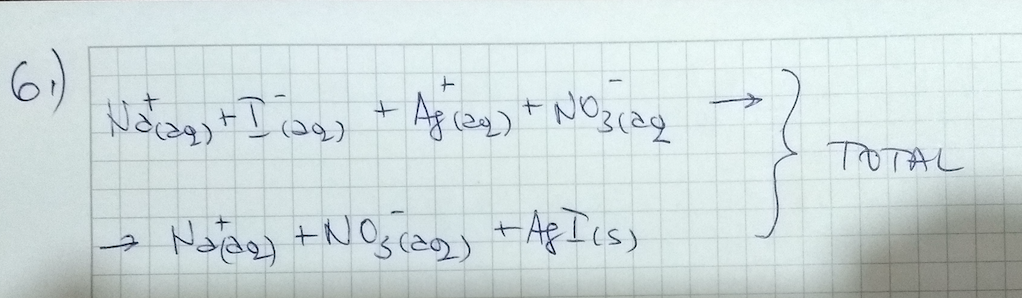 6.)
Na⁺(aq) + I⁻(aq) + Ag⁺(aq) + NO₃⁻(aq →
TOTAL
→ Na⁺(aq) + NO₃⁻(aq) + AgI(s)